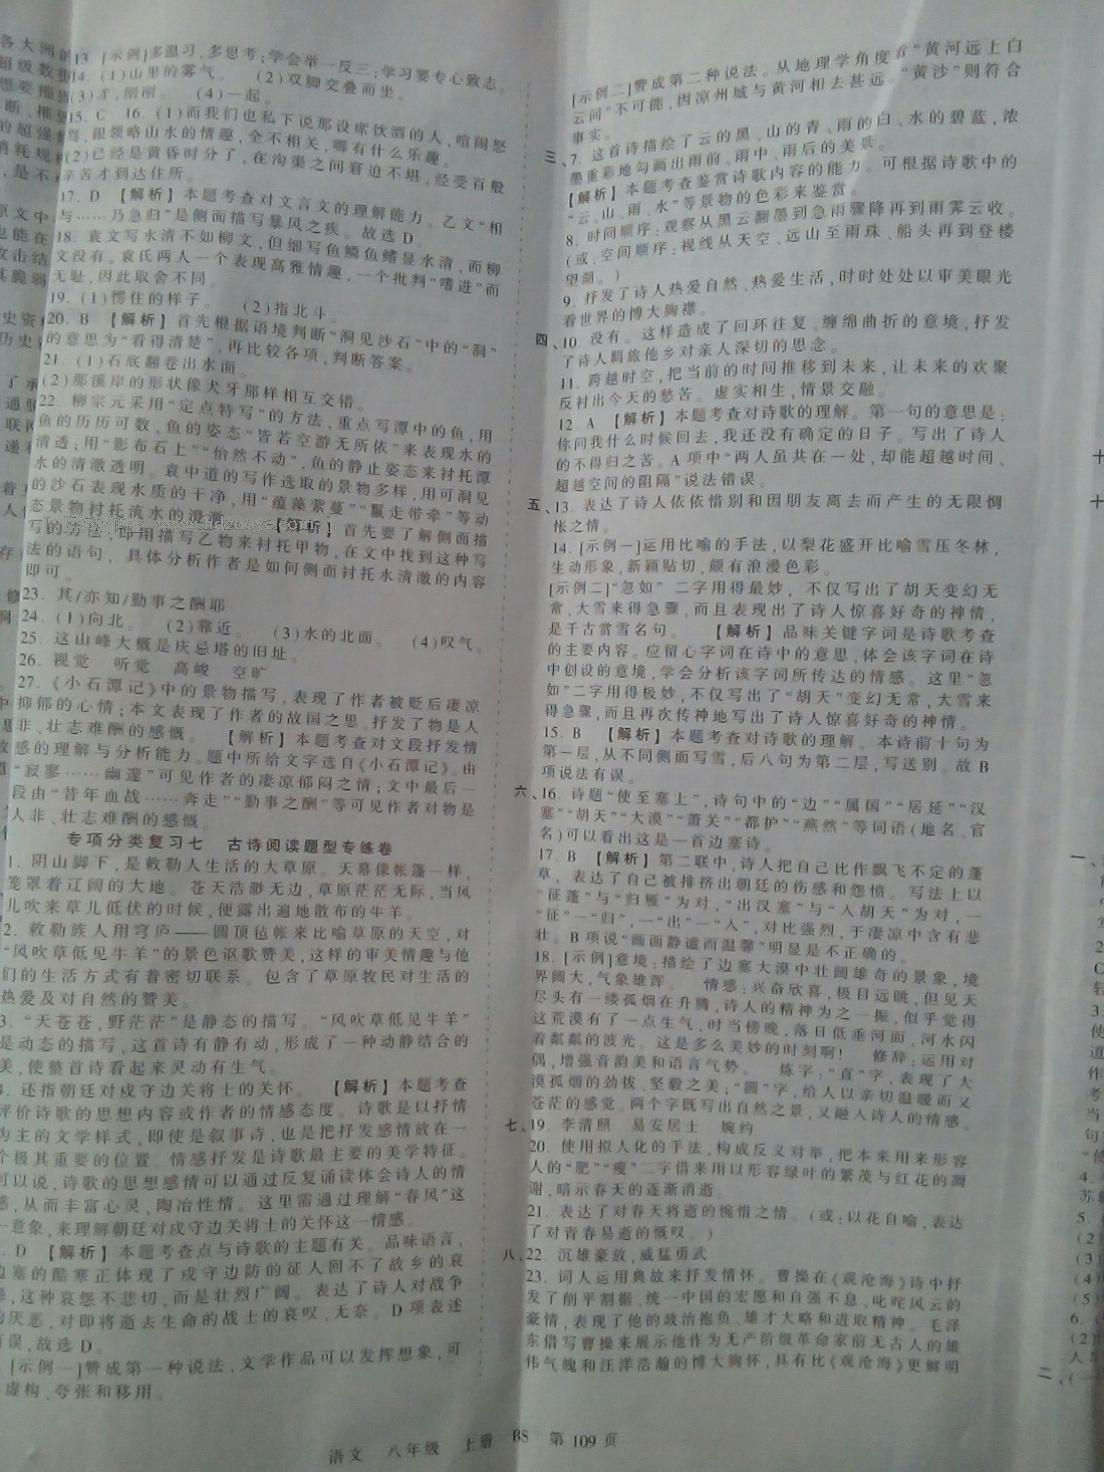 13. [示例]多温习,多思考;学会举一反三;学习要专心致志。
14. (1)山里的雾气。 (2)双脚交叠而坐。
(3)才,刚刚。 (4)一起。
15. C 16. (1)而我们也私下说那设席饮酒的人,喧闹怒
骂,跟领略山水的情趣,全不相关,哪有什么乐趣。
(2)已经是黄昏时分了,在沟渠之间窘迫不堪,经受百般
辛苦才到达住所。
17. D 【解析】本题考查对文言文的理解能力。乙文“相
与……乃急归”是侧面描写暴风之疾。故选D。
18. 袁文写水清不如柳文,但细写鱼鳞鱼鳍显水清,而柳
文没有。袁氏两人一个表现高雅情趣,一个批判“嗜进”而
无耻,因此取舍不同。
19. (1)愣住的样子。 (2)指北斗。
20. B 【解析】首先根据语境判断“洞见沙石”中的“洞”
的意思为“看得清楚”,再比较各项,判断答案。
21. (1)石底翻卷出水面。
(2)那溪岸的形状像犬牙那样相互交错。
22. 柳宗元采用“定点特写”的方法,重点写潭中的鱼,用
鱼的历历可数,鱼的姿态“皆若空游无所依”来表现水的
清透;用“影布石上”“怡然不动”,鱼的静止姿态来衬托潭
水的清澈透明。袁中道的写作选取的景物多样,用可洞见
的沙石表现水质的干净,用“蕴藻萦蔓”“鬣走带牵”等动
态景物衬托流水的澄澈。 【解析】首先要了解侧面描
写的方法,即用描写乙物来衬托甲物,在文中找到这种写
法的语句,具体分析作者是如何侧面衬托水清澈的内容
即可。
23. 其/亦知/勤事之酬耶
24. (1)向北。 (2)靠近。 (3)水的北面。 (4)叹气。
25. 这山峰大概是庆忌塔的旧址。
26. 视觉 听觉 高峻 空旷
27. 《小石潭记》中的景物描写,表现了作者被贬后凄凉
抑郁的心情;本文表现了作者的故国之思。抒发了物是人
非、壮志难酬的感慨。 【解析】本题考查对文段抒发情
感的理解与分析能力。题中所给文字选自《小石潭记》。由
“寂寥……幽邃”可见作者的凄凉郁闷之情;文中最后一
段由“昔年血战……奔走”“勤事之酬”等可见作者对物是
人非、壮志难酬的感慨。
专项分类复习七 古诗阅读题型专练卷
1. 阴山脚下,是敕勒人生活的大草原。天幕像帐篷一样,
笼罩着辽阔的大地。苍天浩渺无边,草原茫茫无际,当风
儿吹来草儿低伏的时候,便露出遍地散布的牛羊。
2. 敕勒族人用穹庐——圆顶毡帐来比喻草原的天空,对
“风吹草低见牛羊”的景色讴歌赞美,这样的审美情趣与他
们的生活方式有着密切联系。包含了草原牧民对生活的
热爱及对自然的赞美。
3. “天苍苍,野茫茫”是静态的描写。“风吹草低见牛羊”
是动态的描写,这首诗有静有动,形成了一种动静结合的
美,使整首诗看起来灵动有生气。
4. 还指朝廷对戍守边关将士的关怀。 【解析】本题考查
评价诗歌的思想内容或作者的情感态度。诗歌是以抒情
为主的文学样式,即使是叙事诗,也是把抒发感情放在一
个极其重要的位置。情感抒发是诗歌最主要的美学特征。
可以说,诗歌的思想感情可以通过反复诵读体会诗人的情
感,从而丰富心灵,陶冶性情。这里需通过理解“春风”这
一意象,来理解朝廷对戍守边关将士的关怀这一情感。
. D 【解析】本题考查点与诗歌的主题有关。品味语言,
边塞的酷寒正体现了戍守边防的征人回不了故乡的哀
怨,这种哀怨不悲切,而是壮烈广阔。表达了诗人对战争
的厌恶,对即将逝去生命的战士的哀叹、无奈。D项表述
有误,故选D。
[示例一]赞成第一种说法,文学作品可以发挥想象,可
虚构、夸张和移用。
[示例二]赞成第二种说法。从地理学角度看“黄河远上白
云间”不可能,因凉州城与黄河相去甚远。“黄沙”则符合
事实。
三、7. 这首诗描绘了云的黑、山的青、雨的白、水的碧蓝,浓
墨重彩地勾画出雨前、雨中、雨后的美景。
【解析】本题考查鉴赏诗歌内容的能力。可根据诗歌中的
“云、山、雨、水”等景物的色彩来鉴赏。
8. 时间顺序:观察从黑云翻墨到急雨骤降再到雨霁云收。
(或:空间顺序:视线从天空、远山至雨珠、船头再到登楼
望湖。)
9. 抒发了诗人热爱自然、热爱生活,时时处处以审美眼光
看世界的博大胸襟。
四、10. 没有。这样造成了回环往复、缠绵曲折的意境,抒发
了诗人羁旅他乡对亲人深切的思念。
11. 跨越时空,把当前的时间推移到未来,让未来的欢聚
反衬出今天的愁苦。虚实相生,情景交融。
12. A 【解析】本题考查对诗歌的理解。第一句的意思是:
你问我什么时候回去,我还没有确定的日子。写出了诗人
的不得归之苦。A项中“两人虽共在一处,却能超越时间、
超越空间的阻隔”说法错误。
五、13. 表达了诗人依依惜别和因朋友离去而产生的无限惆
怅之情。
14. [示例一]运用比喻的手法,以梨花盛开比喻雪压冬林,
生动形象,新颖贴切,颇有浪漫色彩。
[示例二]“忽如”二字用得最妙,不仅写出了胡天变幻无
常,大雪来得急骤,而且表现出了诗人惊喜好奇的神情,
是千古赏雪名句。 【解析】品味关键字词是诗歌考查
的主要内容。应留心字词在诗中的意思,体会该字词在诗
中创设的意境,学会分析该字词所传达的情感。这里“忽
如”二字用得极妙,不仅写出了“胡天”变幻无常,大雪来
得急骤,而且再次传神地写出了诗人惊喜好奇的神情。
15. B 【解析】本题考查对诗歌的理解。本诗前十句为
第一层,从不同侧面写雪,后八句为第二层,写送别。故B
项说法有误。
六、16. 诗题“使至塞上”,诗句中的“边”“属国”“居延”“汉
塞”“胡天”“大漠”“萧关”“都护”“燕然”等词语(地名、官
名)可以看出这是一首边塞诗。
17. B 【解析】第二联中,诗人把自己比作飘飞不定的蓬
草,表达了自己被排挤出朝廷的伤感和怨愤。写法上以
“征蓬”与“归雁”为对,“出汉塞”与“入胡天”为对,一
“征”一“归”,一“出”一“入”,对比强烈,于凄凉中含有悲
壮。B项说“画面静谧而温馨”明显是不正确的。
18. [示例]意境:描绘了边塞大漠中壮阔雄奇的景象,境
界阔大,气象雄浑。 情感:兴奋欣喜,极目远眺,但见天
尽头有一缕孤烟在升腾,诗人的精神为之一振,似乎觉得
这荒漠有了一点生气,时当傍晚,落日低垂河面,河水闪
着粼粼的波光。这是多么美妙的时刻啊! 修辞:运用对
偶,增强音韵美和语言气势。 炼字:“直”字,表现了大
漠孤烟的劲拔、坚毅之美;“圆”字,给人以亲切温暖而又
苍茫的感觉。两个字既写出自然之景,又融入诗人的情感。
七、19. 李清照 易安居士 婉约
20. 使用拟人化的手法,构成反义对举,把本来用来形容
人的“肥”“瘦”二字借来用以形容绿叶的繁茂与红花的凋
谢,暗示春天的逐渐消逝。
21. 表达了对春天将逝的惋惜之情。(或:以花自喻,表达
了对青春易逝的慨叹。)
八、22. 沉雄豪放,威猛勇武
23. 词人运用典故来抒发情怀。曹操在《观沧海》诗中抒
发了削平割据、统一中国的宏愿和自强不息、叱咤风云的
豪情,表现了他的政治抱负、雄才大略和进取精神。毛泽
东借写曹操来展示他作为无产阶级革命家前无古人的雄
伟气魄和汪洋浩瀚的博大胸怀,具有比《观沧海》更鲜明
语文 八年级 上册 BS 第109页